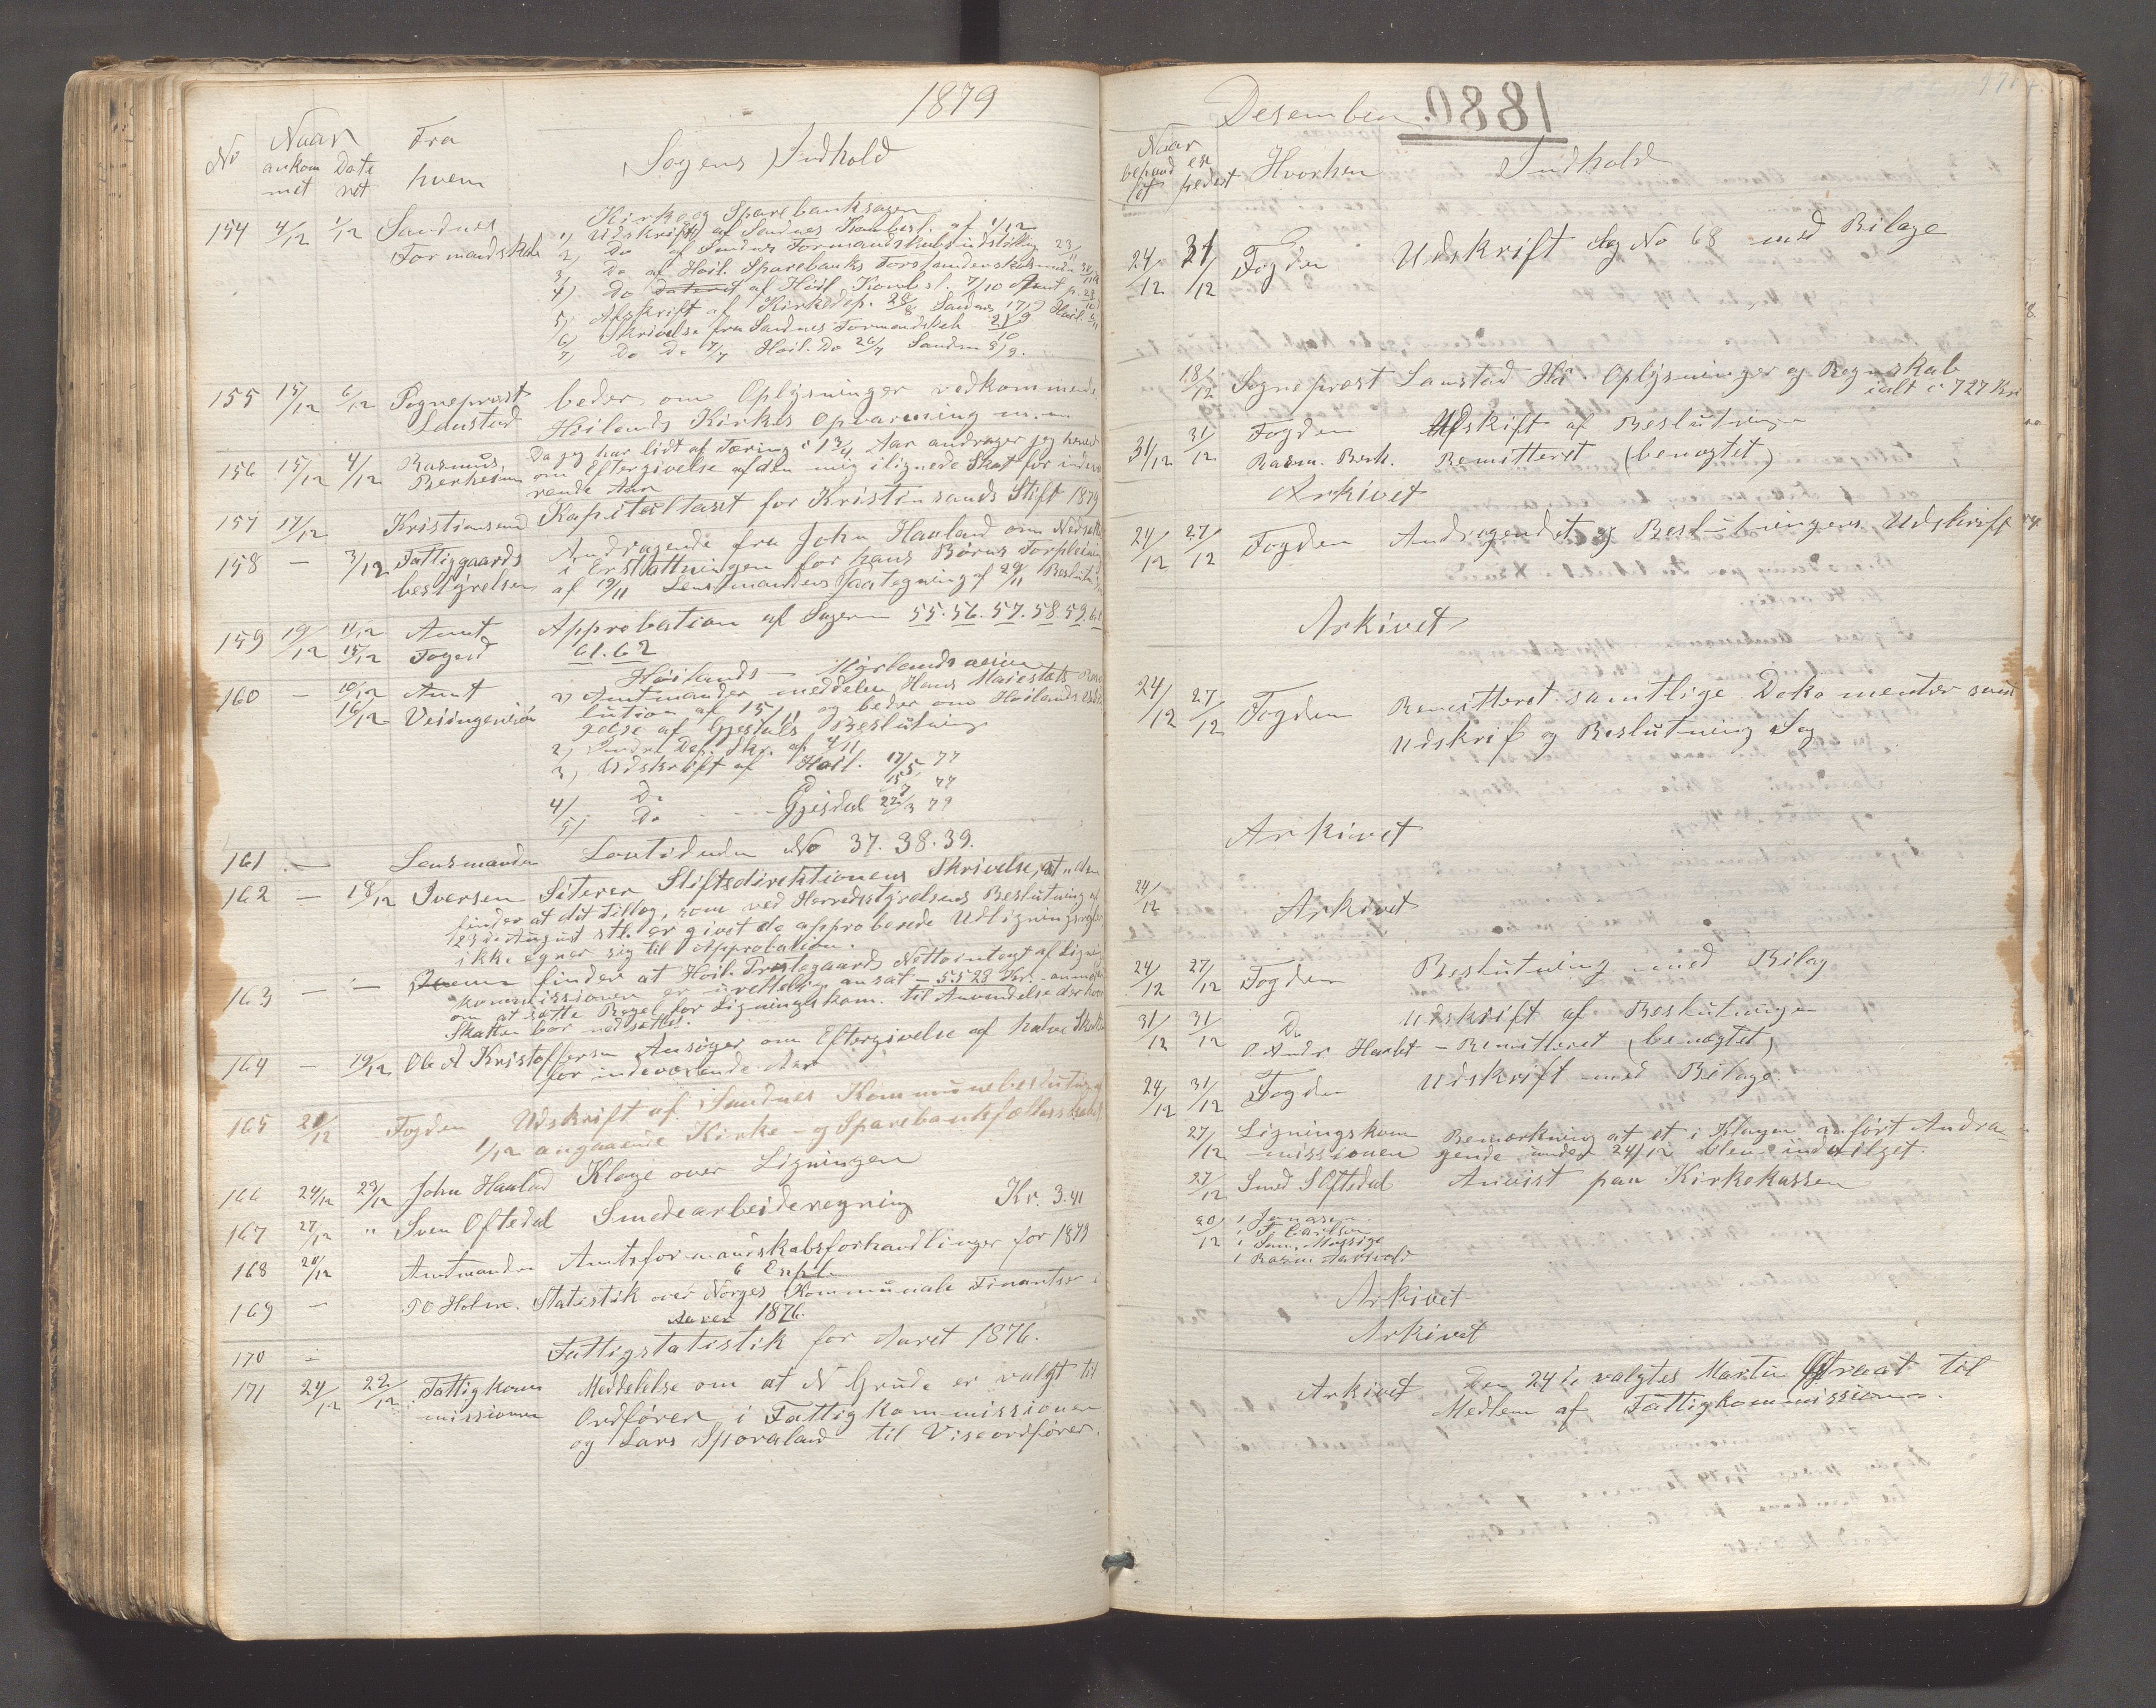 1879
No
Naar
Fra
ankom Date
met ret
hvem
Sagens Indhold
154 4/12 1/12 Sandnes
Formandskab
Kirke og Sparebanksagen
1) Udskrift af Sandnes Kombesl. af 1/12
2) Do af Sandnes Formandskabsindstilling 23/11
3) Do af Høil. Sparebanks Forstanderskabs
4) Do af Høil. Kombesl. 7/10 Amt
5) Afskrift af Kirkedep. 28/8 Sandnes
6) Skrivelse fra Sandnes Formandskab
7) Do Do 7/7 Høil. Do 26/7 Sandn
155 15/12 6/12 Sogneprest
Lanstad
beder om Oplysninger vedkommende
Høilands Kirkes Opvarmning m.m
156 15/12 4/12 Rasmus
Berheim
Da jeg har lidt af Tæring i 1 3/4 Aar andrager jeg herved
om Eftergivelse af den mig ilignede Skat for indevæ
rende Aar
157 17/12 Kristiansand Kapiteltaxt for Kristiansands Stift 1879
158 — 3/12 Fattiggaards
bestyrelsen
Andragende fra John Haaland om Nedsættelse
i Erstatningen for hans Børns Forpleining
af 19/11 Lensmandens Paategning af 29/11 Beslutning
159 19/12 11/12 Amt
15/12 Foged
Approbation af Sagern 55.56.57.58.59.
61.62
160 — 10/12 Amt
16/12 Veiingeniør
Høilands — veien
1) Amtmanden meddeler Hans Maiestæts Reso
lution af 15/11 og beder om Høilands
gelse af Gjestals Beslutning
2) Indre Dep. Skr. af 4/11
3) Udskrift af Høil. 17/5 77
4) Do 77
5) Do Gjesdal 22/3 79
161 — Lensmanden Loutiduden No 37.38.39.
162 — 18/12 Iversen Siterer Stiftsdirektionens Skrivelse, at "den
finder at det Tillæg, som ved Herredsstyrelsens Beslutning af
123de August stl. er givet de approberede Udligningsregler
ikke egner sig til Approbation.
163 — — finder at Høil. Prestegaards Nettoindtægt af Ligne
kommissionen er urettelig ansat — 5528 Kr. anmoder
om at sætte Regel for Ligningskom. til Anvendelse
Skatten bør nedsættes.
164 — 19/12 Ole A Kristoffersen Ansøger om Eftergivelse af halve Skatten
for indeværende Aar
165 21/12 Fogden Udskrift af Sandnes Kommunebeslutning
1/12 angaaende Kirke- og Sparebankfællesskabet
166 24/12 23/12 John Haaland Klage over Ligningen
167 27/12 " Sven Oftedal Smedearbeideregning Kr. 3.41
168 20/12 Amtmanden Amtsformandskabsforhandlinger for 1879
6 Expl.
169 — TO Holm. Statestik over Norges Kommunale Finantser i
Aaret 1876.
170 — Fattigstatistik for Aaret 1876.
171 24/12 22/12 Fattigkom
missionen
Meddelelse om at N Grude er valgt til
Ordfører i Fattigkommissionen
og Lars Sporaland til Viseordfører.
Desember
1880.
Naar
Hvorhen
Indhold
24/12 31/12 Fogden Udskrift Sag No 68 med Bilage
18/12 Sogneprest Lanstad Hå. Oplysninger og Regnskab
ialt 727 Kr
31/12 31/12 Fogden Udskrift af Beslutninge
Rasm. Berh. Remitteret (benegtet)
Arkivet
24/12 27/12 Fogden Andragendet og Beslutningens Udskrift
Arkivet
24/12 27/12 Fogden Remitteret samtlige Dokumenter samt
Udskrift og Beslutning Sag
Arkivet
24/12
Arkivet
24/12 27/12 Fogden Beslutning med Bilag
31/12 31/12 Do Udskrift af Beslutningen
— Remitteret (benegtet)
24/12 31/12 Fogden Udskrift med Bilage.
27/12 Ligningskom
missionen
Bemærkning at et i Klagen anført Andra=
gende under 24/12 blev indvilget.
27/12 Smed S Oftedal Anvist paa Kirkekassen
20/12 1 Jonasen
1 T. Carlsen
1
1 Rasm.
Arkivet
Arkivet
Arkivet Den 24de valgtes Martin Graat til
Medlem af Fattigkommissionen.